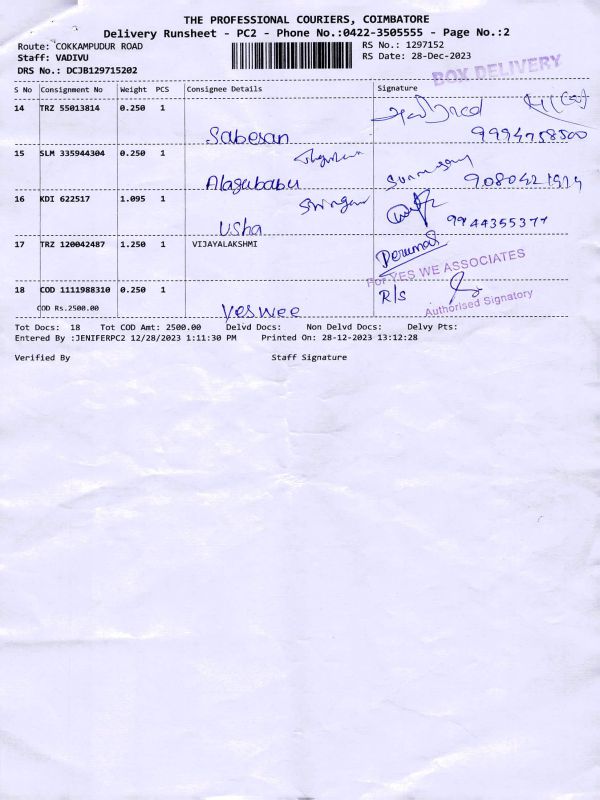 THE PROFESSIONAL COURIERS, COIMBATORE
Delivery Runsheet - PC2 - Phone No.:0422-3505555 - Page No.:2
Route: COKKAMPUDUR ROAD
RS No.: 1297152
Staff: VADIVU
RS Date: 28-Dec-2023
DRS No.: DCJB129715202
BOX DELIVERY
S No Consignment No Weight PCS Consignee Details Signature
14 TRZ 55013814 0.250 1
Sabesan 9994758500
15 SLM 335944304 0.250 1
Alagubabu
16 KDI 622517 1.095 1
Usha 9944355377
17 TRZ 120042487 1.250 1 VIJAYALAKSHMI
Perumal
For YES WE ASSOCIATES
18 COD 1111988310 0.250 1 R/s
COD Rs.2500.00 Yeswee
Authorised Signatory
Tot Docs: 18 Tot COD Amt: 2500.00 Delvd Docs: Non Delvd Docs: Delvy Pts:
Entered By :JENIFERPC2 12/28/2023 1:11:30 PM Printed On: 28-12-2023 13:12:28
Verified By Staff Signature